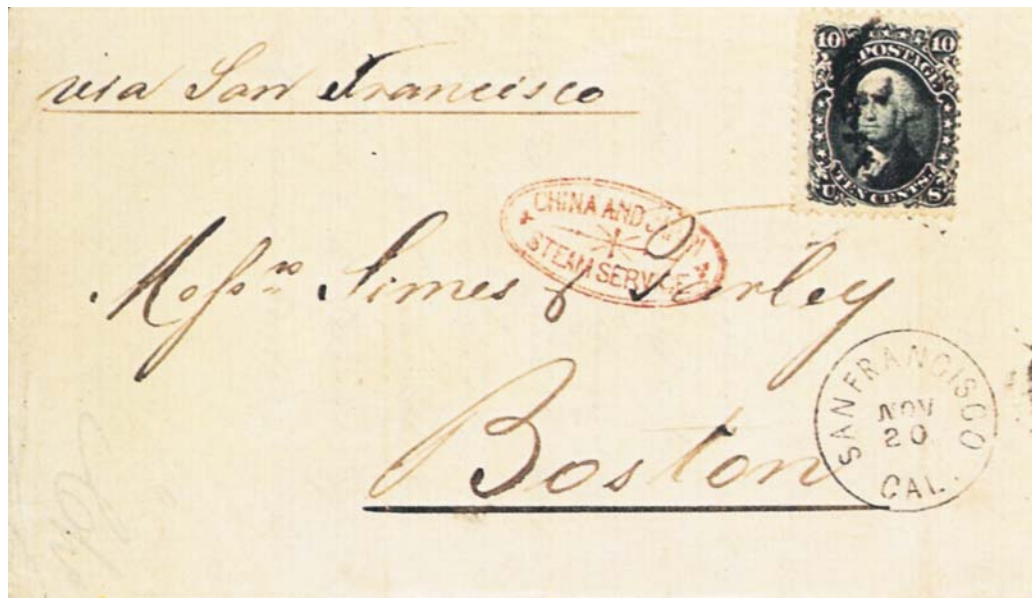 via San Francisco
10 10
POSTAGE
TEN CENTS.
U S
CHINA AND JAPAN
STEAM SERVICE
Messrs Simes & Farley
Boston
SAN FRANCISCO
NOV
20
CAL.